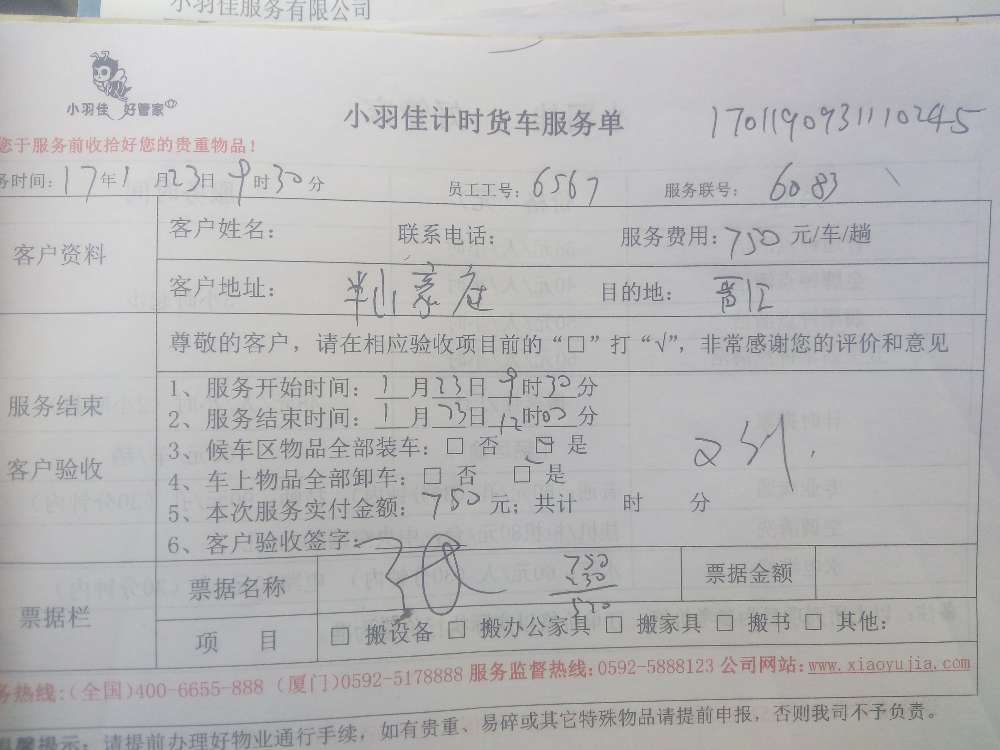 小羽佳服务有限公司
小羽佳 好管家
小羽佳计时货车服务单 1701190931110245
您于服务前收拾好您的贵重物品！
务时间：17年1月23日9时30分 员工工号：6567 服务联号：6083
客户资料 客户姓名： 联系电话： 服务费用：750元/车/趟
客户地址：半山豪庭 目的地：晋江
尊敬的客户，请在相应验收项目前的“□”打“√”，非常感谢您的评价和意见
服务结束
客户验收
1、服务开始时间：1月23日9时30分
2、服务结束时间：1月23日12时00分
3、候车区物品全部装车：□ 否 □ 是
4、车上物品全部卸车：□ 否 □ 是
5、本次服务实付金额：750元；共计 时 分
6、客户验收签字：
票据栏 票据名称 750 票据金额
230
520
项 目 □ 搬设备 □ 搬办公家具 □ 搬家具 □ 搬书 □ 其他：
务热线：(全国)400-6655-888 (厦门)0592-5178888 服务监督热线：0592-5888123 公司网站：www.xiaoyujia.com
温馨提示：请提前办理好物业通行手续，如有贵重、易碎或其它特殊物品请提前申报，否则我司不予负责。